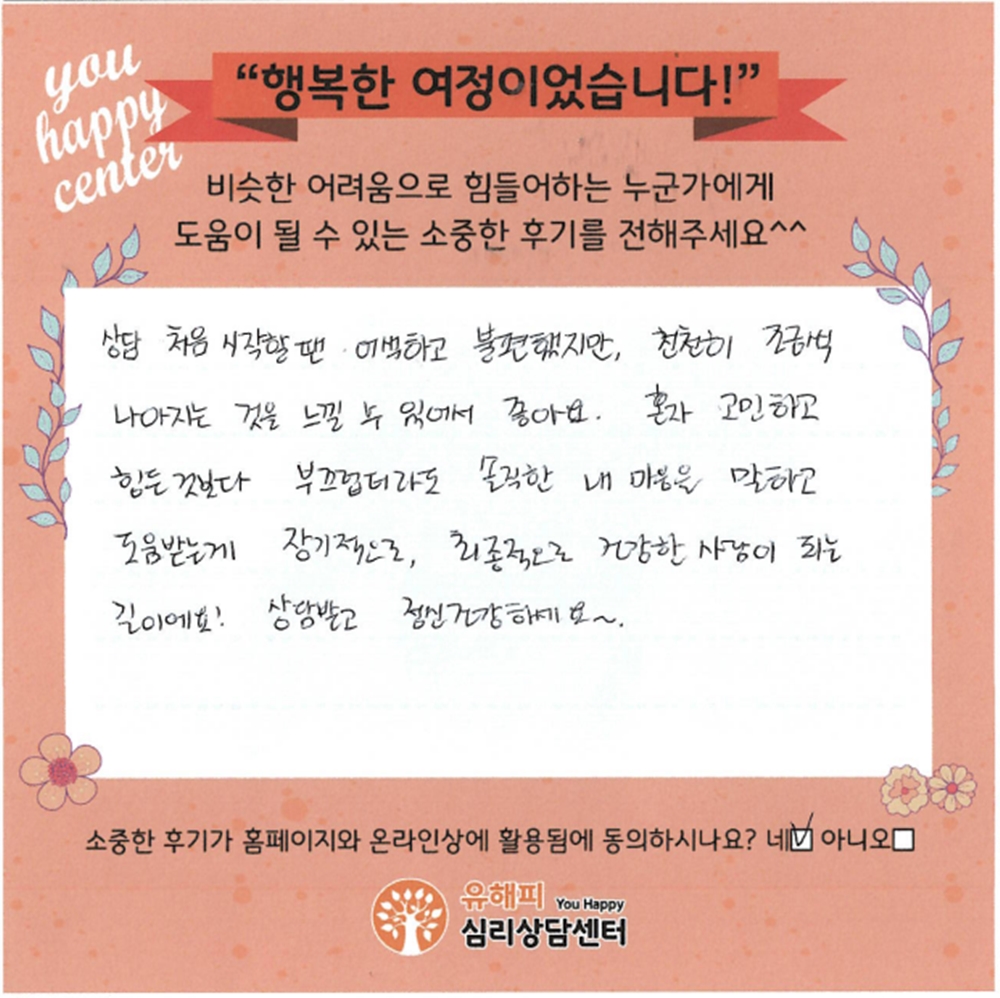 you
happy
center
“행복한 여정이었습니다!”
비슷한 어려움으로 힘들어하는 누군가에게
도움이 될 수 있는 소중한 후기를 전해주세요^^
상담 처음 시작할 땐 어색하고 불편했지만, 천천히 조금씩
나아지는 것을 느낄 수 있어서 좋아요. 혼자 고민하고
힘든것보다 부끄럽더라도 솔직한 내 마음을 말하고
도움받는게 장기적으로, 최종적으로 건강한 사람이 되는
길이에요! 상담받고 정신건강하세요~.
소중한 후기가 홈페이지와 온라인상에 활용됨에 동의하시나요? 네☑ 아니오☐
유해피 You Happy
심리상담센터